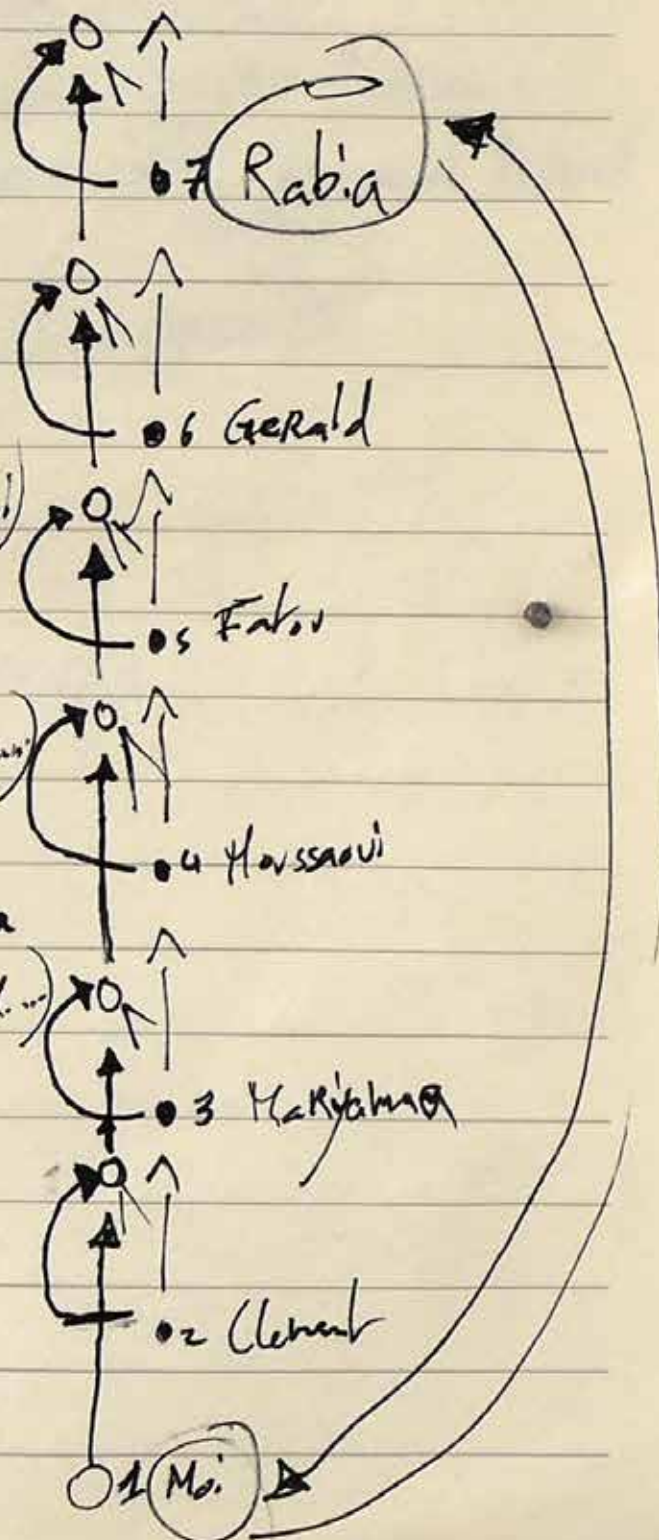 7 Rabia
6 GeRald
5 Fatou
4 Moussaoui
3 MaRiyahma
2 Clement
1 Moi